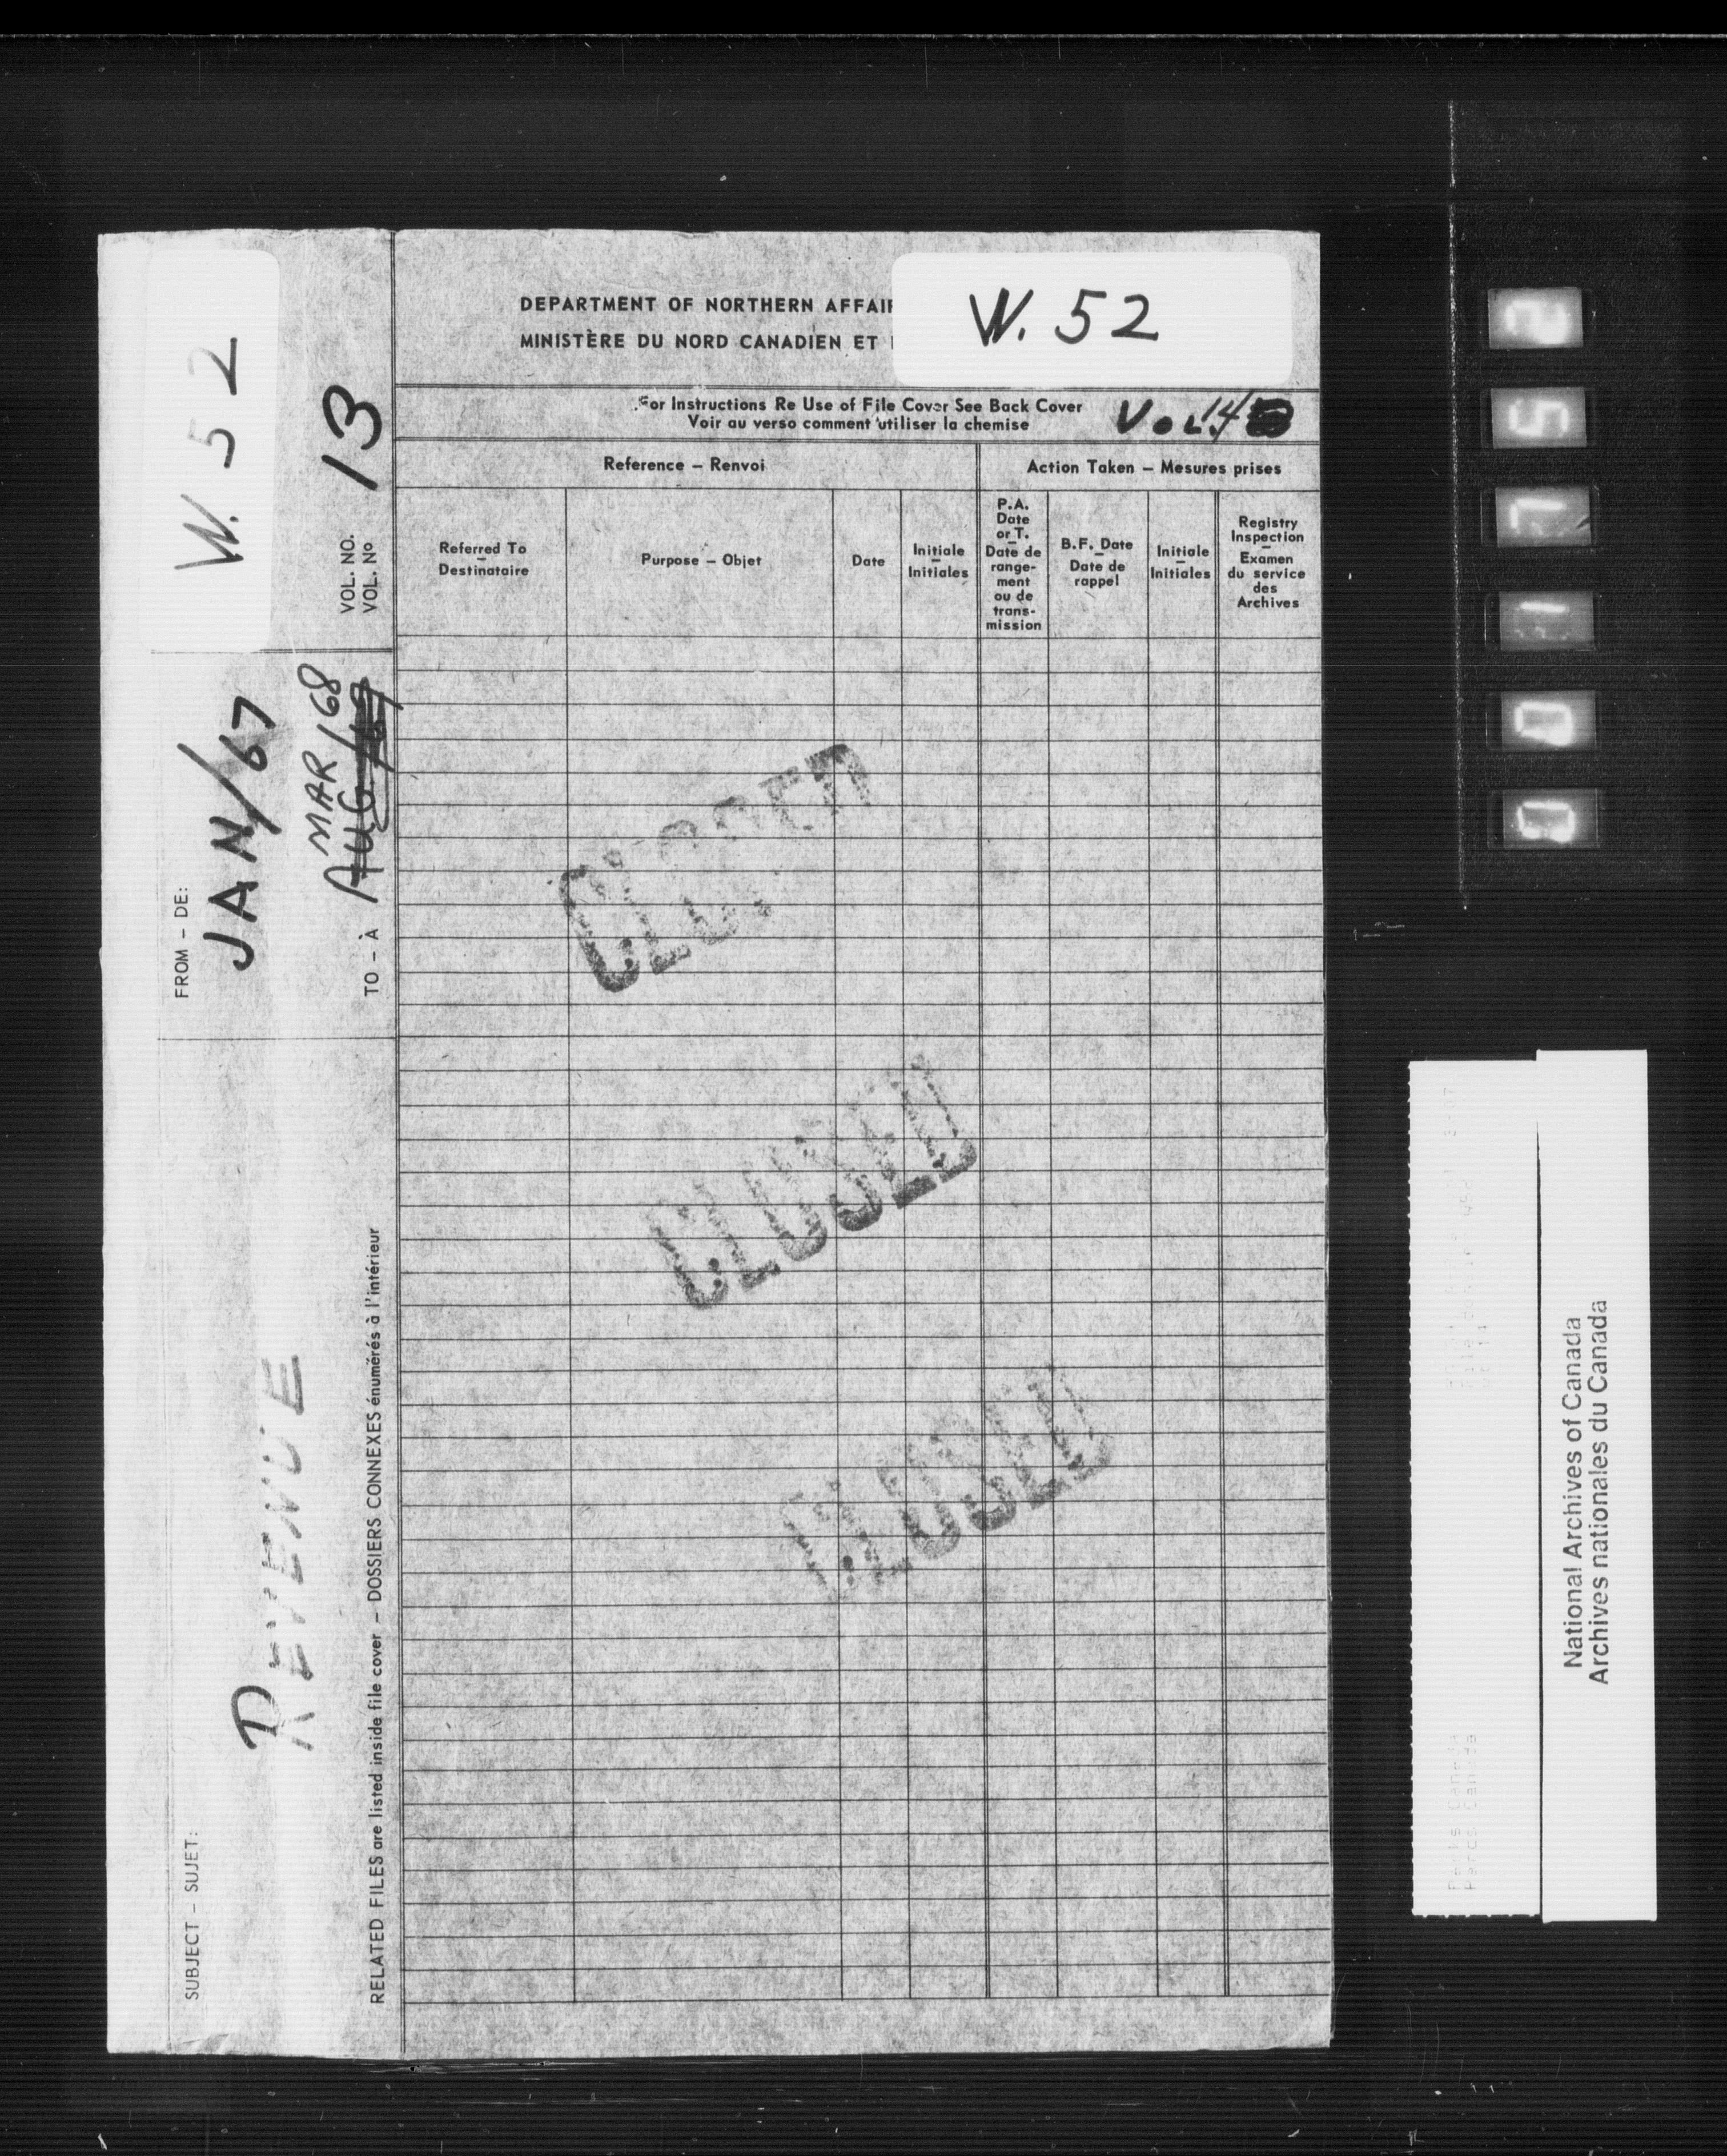 W. 52
VOL. NO.
VOL. Nº 13
FROM – DE:
JAN/67
TO – À
MAR/68
AUG.
SUBJECT – SUJET:
REVENUE
RELATED FILES are listed inside file cover – DOSSIERS CONNEXES énumérés à l'intérieur
DEPARTMENT OF NORTHERN AFFAIR
MINISTÈRE DU NORD CANADIEN ET
W. 52
For Instructions Re Use of File Cover See Back Cover
Voir au verso comment utiliser la chemise
VOL. 14
Reference – Renvoi
Action Taken – Mesures prises
Referred To
–
Destinataire
Purpose – Objet
Date
Initiale
–
Initiales
P.A.
Date
or T.
–
Date de
range-
ment
ou de
trans-
mission
B.F. Date
–
Date de
rappel
Initiale
–
Initiales
Registry
Inspection
–
Examen
du service
des
Archives
CLOSED
CLOSED
CLOSED
National Archives of Canada
Archives nationales du Canada
Parks Canada
Parcs Canada